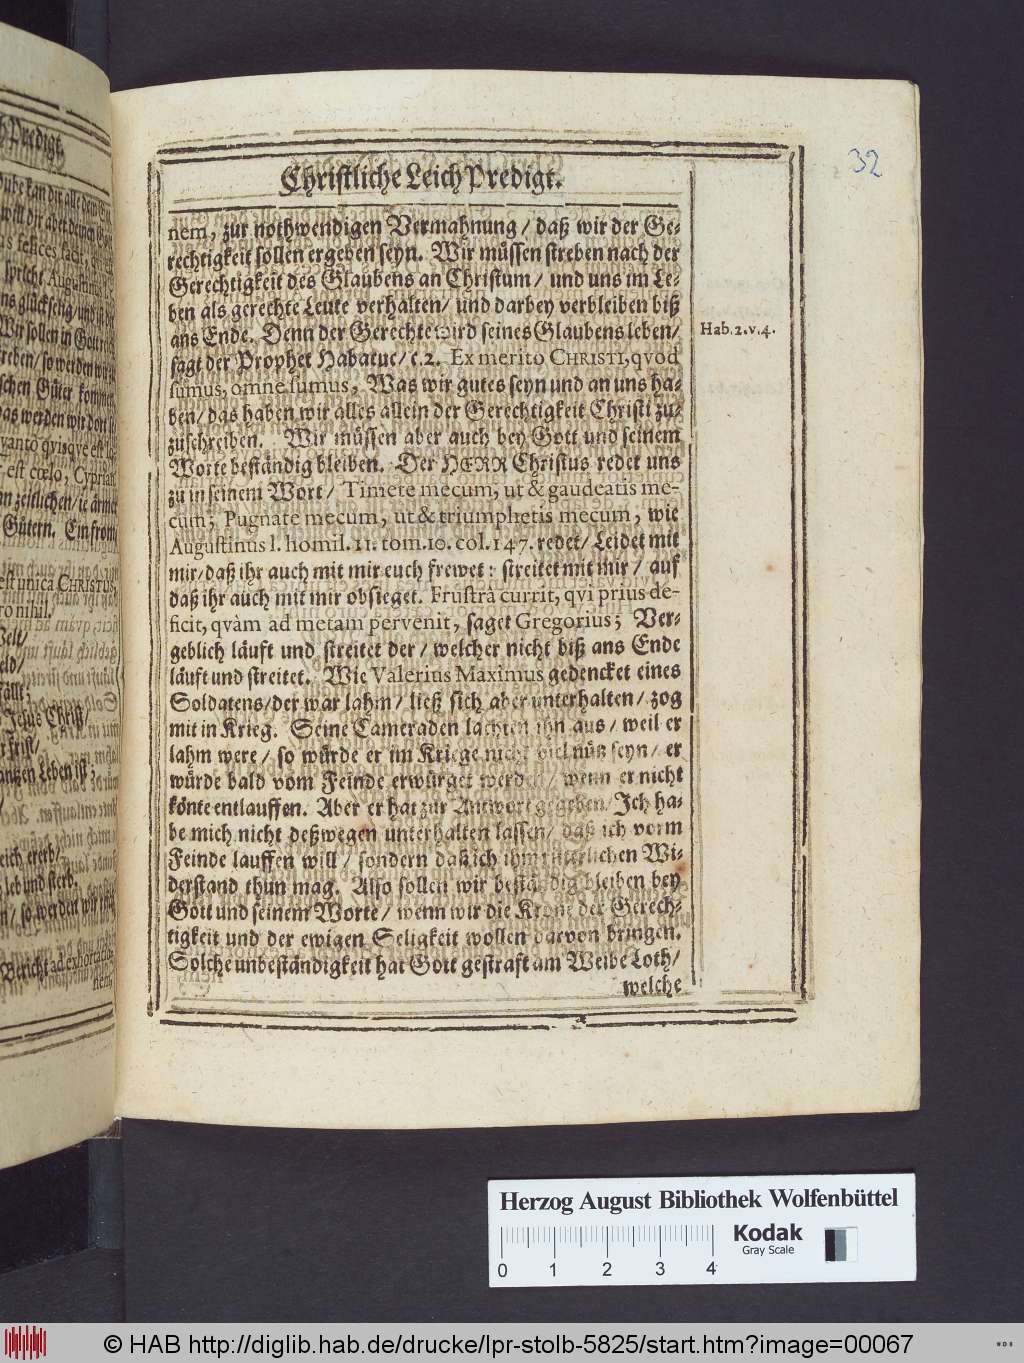 h Predigt.
32
Christliche Leich Predigt.
nem, zur nothwendigen Vermahnung / daß wir der Ge-
rechtigkeit sollen ergeben seyn. Wir müssen streben nach der
Gerechtigkeit des Glaubens an Christum / und uns im Le-
ben als gerechte Leute verhalten / und darbey verbleiben biß
ans Ende. Denn der Gerechte wird seines Glaubens leben /
sagt der Prophet Habacuc / c. 2. Ex merito CHRISTI, qvod
sumus, omne sumus, Was wir gutes seyn und an uns ha-
ben / das haben wir alles allein der Gerechtigkeit Christi zu-
zuschreiben. Wir müssen aber auch bey Gott und seinem
Worte beständig bleiben. Der HERR Christus redet uns
zu in seinem Wort / Timete mecum, ut & gaudeatis me-
cum; Pugnate mecum, ut & triumphetis mecum, wie
Augustinus l. homil. 11. tom. 10. col. 147. redet / Leidet mit
mir / daß ihr auch mit mir euch frewet: streitet mit mir / auf
daß ihr auch mit mir obsieget. Frustrà currit, qvi prius de-
ficit, qvàm ad metam pervenit, saget Gregorius; Ver-
geblich läuft und streitet der / welcher nicht biß ans Ende
läuft und streitet. Wie Valerius Maximus gedencket eines
Soldatens / der war lahm / ließ sich aber unterhalten / zog
mit in Krieg. Seine Cameraden lachten ihn aus / weil er
lahm were / so würde er im Kriege nicht viel nütz seyn / er
würde bald vom Feinde erwürget werden / wenn er nicht
könte entlauffen. Aber er hat zur Antwort gegeben / Ich ha-
be mich nicht deßwegen unterhalten lassen / daß ich vorm
Feinde lauffen will / sondern daß ich ihm ritterlichen Wi-
derstand thun mag. Also sollen wir beständig bleiben bey
Gott und seinem Worte / wenn wir die Krone der Gerech-
tigkeit und der ewigen Seligkeit wollen darvon bringen.
Solche unbeständigkeit hat Gott gestraft am Weibe Loth /
welche
Hab. 2. v. 4.
Herzog August Bibliothek Wolfenbüttel
Kodak
Gray Scale
0 1 2 3 4
© HAB http://diglib.hab.de/drucke/lpr-stolb-5825/start.htm?image=00067